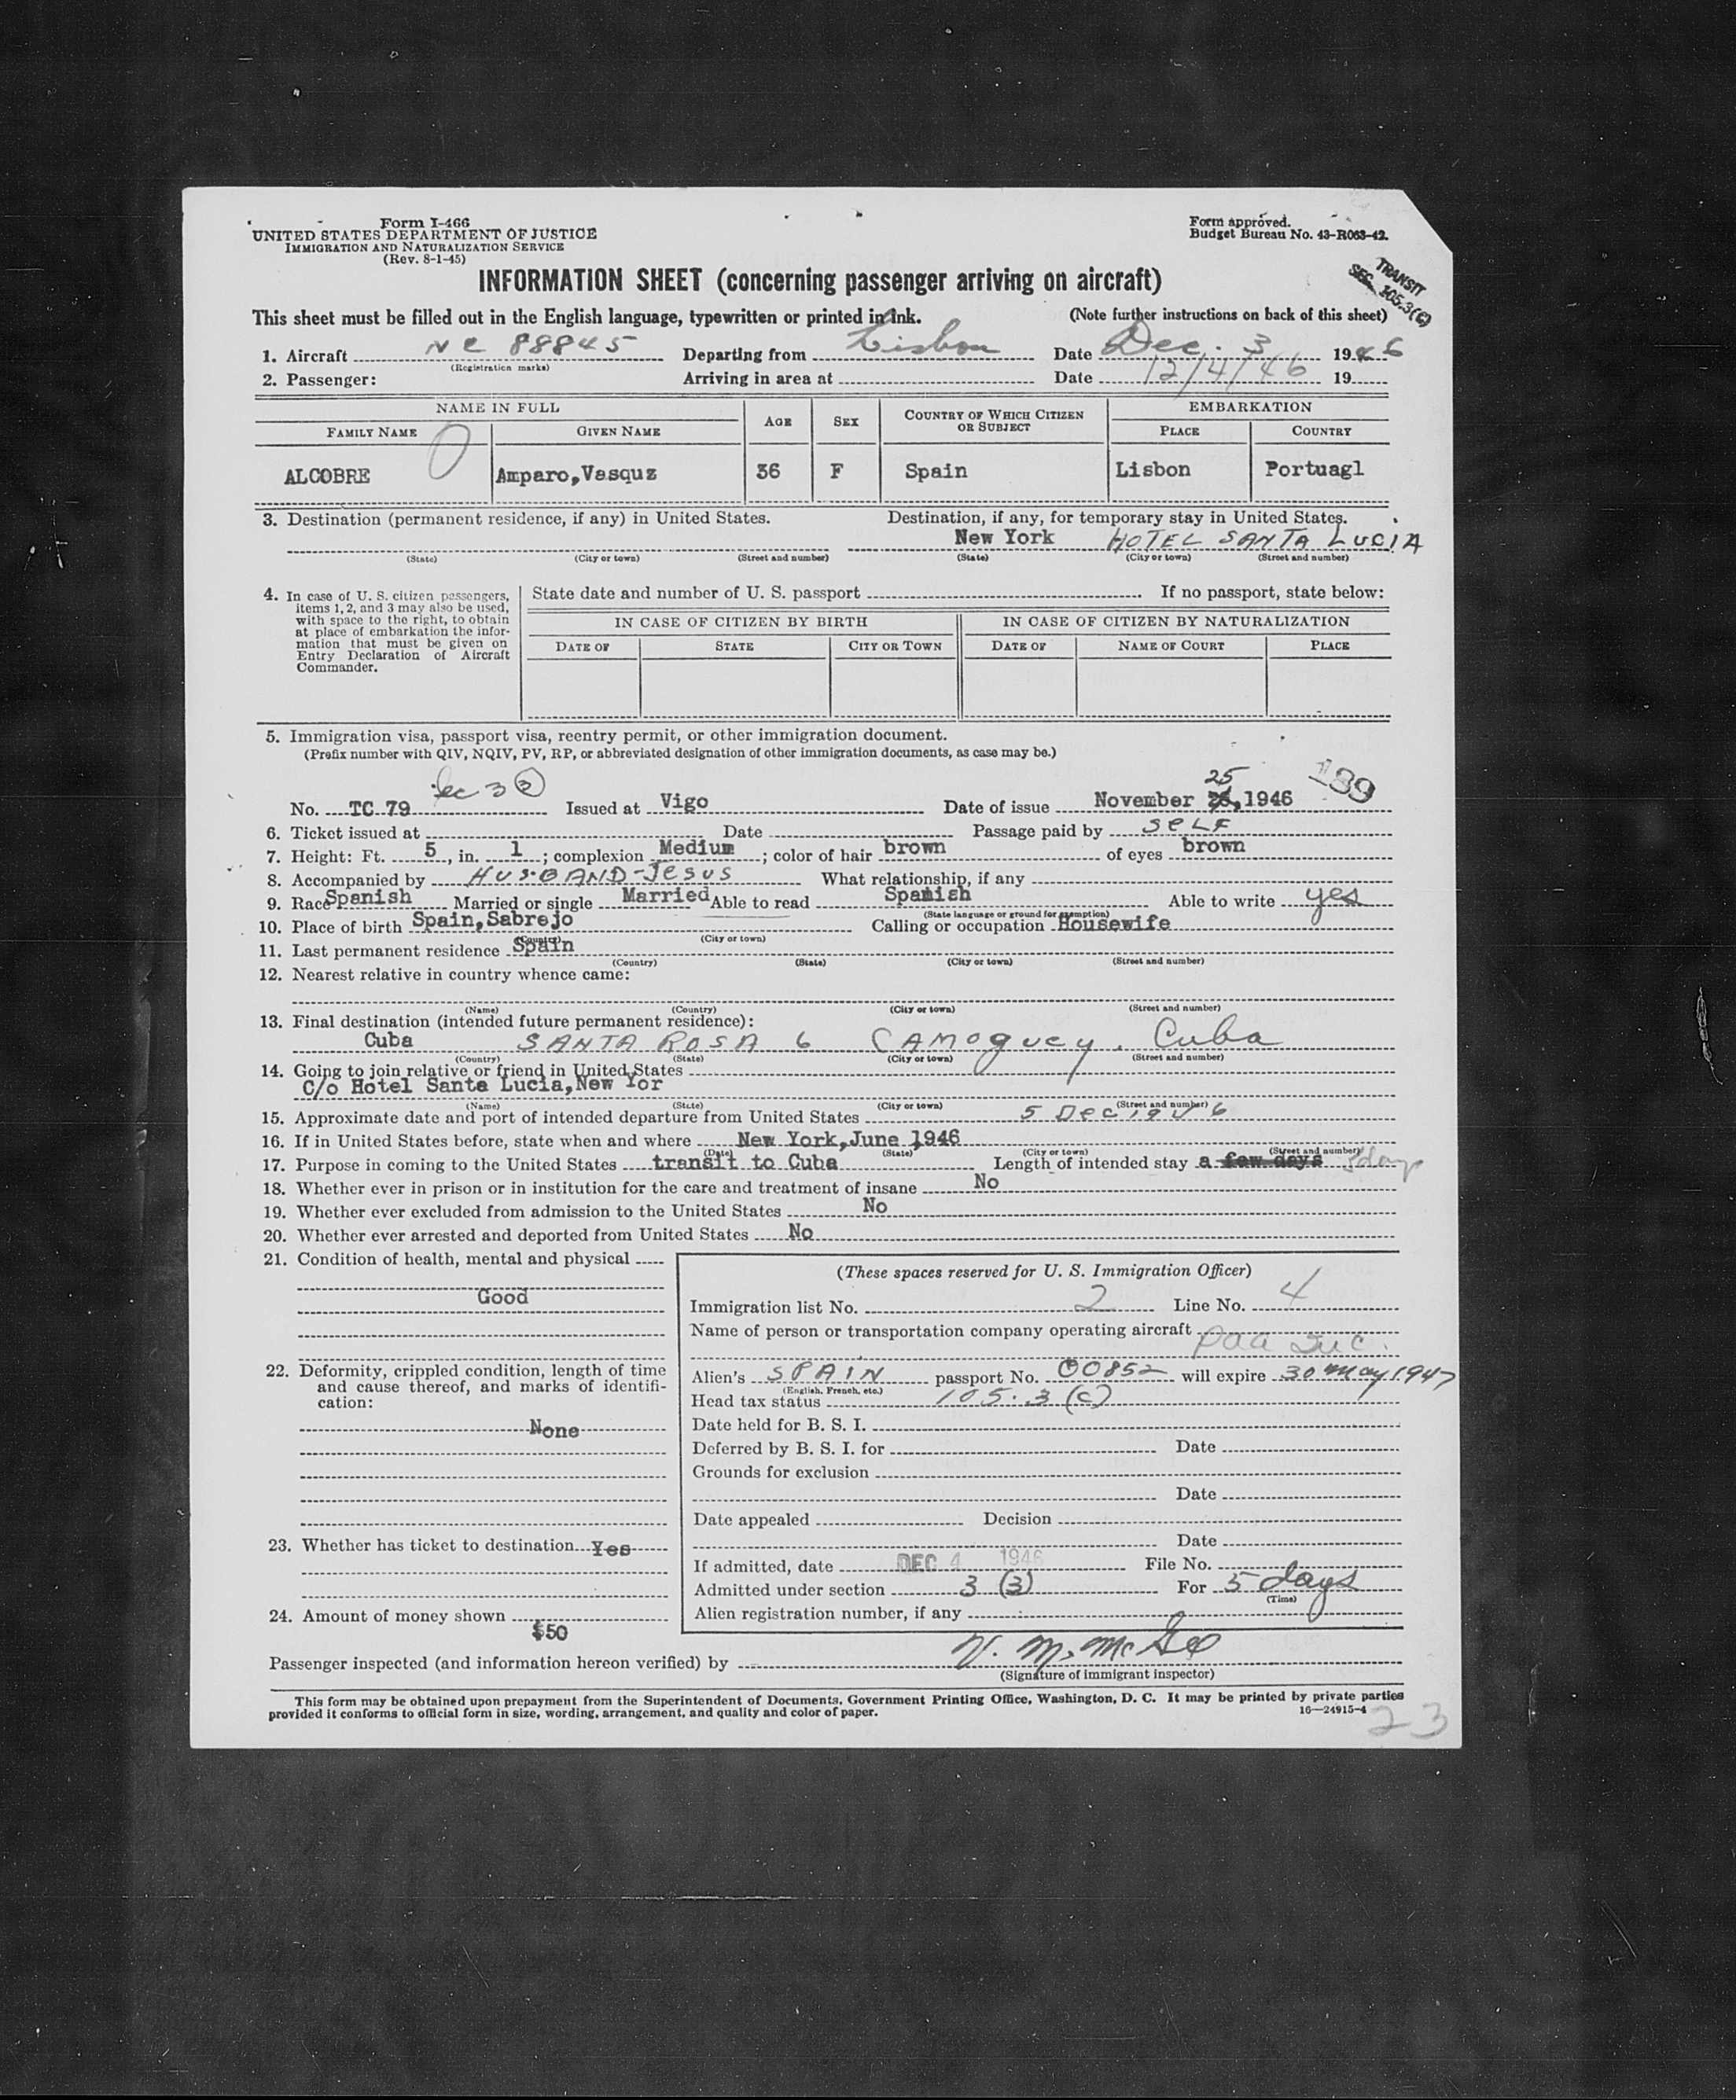 Form I-466
UNITED STATES DEPARTMENT OF JUSTICE
IMMIGRATION AND NATURALIZATION SERVICE
(Rev. 8-1-45)
Form approved.
Budget Bureau No. 43-R063-42.
INFORMATION SHEET (concerning passenger arriving on aircraft)
TRANSIT
SEC. 105.3(C)
This sheet must be filled out in the English language, typewritten or printed in ink. (Note further instructions on back of this sheet)
1. Aircraft NC 88845 Departing from Lisbon Date Dec. 3 1946
(Registration marks)
2. Passenger: Arriving in area at Date 12/4/46 19
NAME IN FULL AGE SEX COUNTRY OF WHICH CITIZEN OR SUBJECT EMBARKATION
FAMILY NAME GIVEN NAME PLACE COUNTRY
ALCOBRE Amparo,Vasquz 36 F Spain Lisbon Portuagl
3. Destination (permanent residence, if any) in United States. Destination, if any, for temporary stay in United States.
New York HOTEL SANTA LUCIA
(State) (City or town) (Street and number) (State) (City or town) (Street and number)
4. In case of U. S. citizen passengers, items 1, 2, and 3 may also be used, with space to the right, to obtain at place of embarkation the information that must be given on Entry Declaration of Aircraft Commander.
State date and number of U. S. passport If no passport, state below:
IN CASE OF CITIZEN BY BIRTH IN CASE OF CITIZEN BY NATURALIZATION
DATE OF STATE CITY OR TOWN DATE OF NAME OF COURT PLACE
5. Immigration visa, passport visa, reentry permit, or other immigration document.
(Prefix number with QIV, NQIV, PV, RP, or abbreviated designation of other immigration documents, as case may be.)
Sec 3 (3) 25 189
No. TC 79 Issued at Vigo Date of issue November , 1946
6. Ticket issued at Date Passage paid by SELF
7. Height: Ft. 5, in. 1; complexion Medium; color of hair brown of eyes brown
8. Accompanied by HUSBAND-JESUS What relationship, if any
9. Race Spanish Married or single Married Able to read Spanish Able to write yes
(State language or ground for exemption)
10. Place of birth Spain,Sabrejo Calling or occupation Housewife
(Country) (City or town)
11. Last permanent residence Spain
(Country) (State) (City or town) (Street and number)
12. Nearest relative in country whence came:
(Name) (Country) (City or town) (Street and number)
13. Final destination (intended future permanent residence):
Cuba SANTA ROSA 6 CAMOguey. Cuba
(Country) (State) (City or town) (Street and number)
14. Going to join relative or friend in United States
C/o Hotel Santa Lucia,New Yor
(Name) (State) (City or town) (Street and number)
15. Approximate date and port of intended departure from United States 5 Dec 1946
16. If in United States before, state when and where New York,June 1946
(Date) (State) (City or town) (Street and number)
17. Purpose in coming to the United States transit to Cuba Length of intended stay a few days 5 days
18. Whether ever in prison or in institution for the care and treatment of insane No
19. Whether ever excluded from admission to the United States No
20. Whether ever arrested and deported from United States No
21. Condition of health, mental and physical
Good
22. Deformity, crippled condition, length of time and cause thereof, and marks of identification:
None
23. Whether has ticket to destination Yes
24. Amount of money shown
$50
(These spaces reserved for U. S. Immigration Officer)
Immigration list No. 2 Line No. 4
Name of person or transportation company operating aircraft
PAA Inc.
Alien's SPAIN passport No. 00852 will expire 30 May 1947
(English, French, etc.)
Head tax status 105.3 (c)
Date held for B. S. I.
Deferred by B. S. I. for Date
Grounds for exclusion
Date
Date appealed Decision
Date
If admitted, date DEC 4 1946 File No.
Admitted under section 3 (3) For 5 days
(Time)
Alien registration number, if any
Passenger inspected (and information hereon verified) by V. M. McGee
(Signature of immigrant inspector)
This form may be obtained upon prepayment from the Superintendent of Documents, Government Printing Office, Washington, D. C. It may be printed by private parties
provided it conforms to official form in size, wording, arrangement, and quality and color of paper. 16—24915-4
23